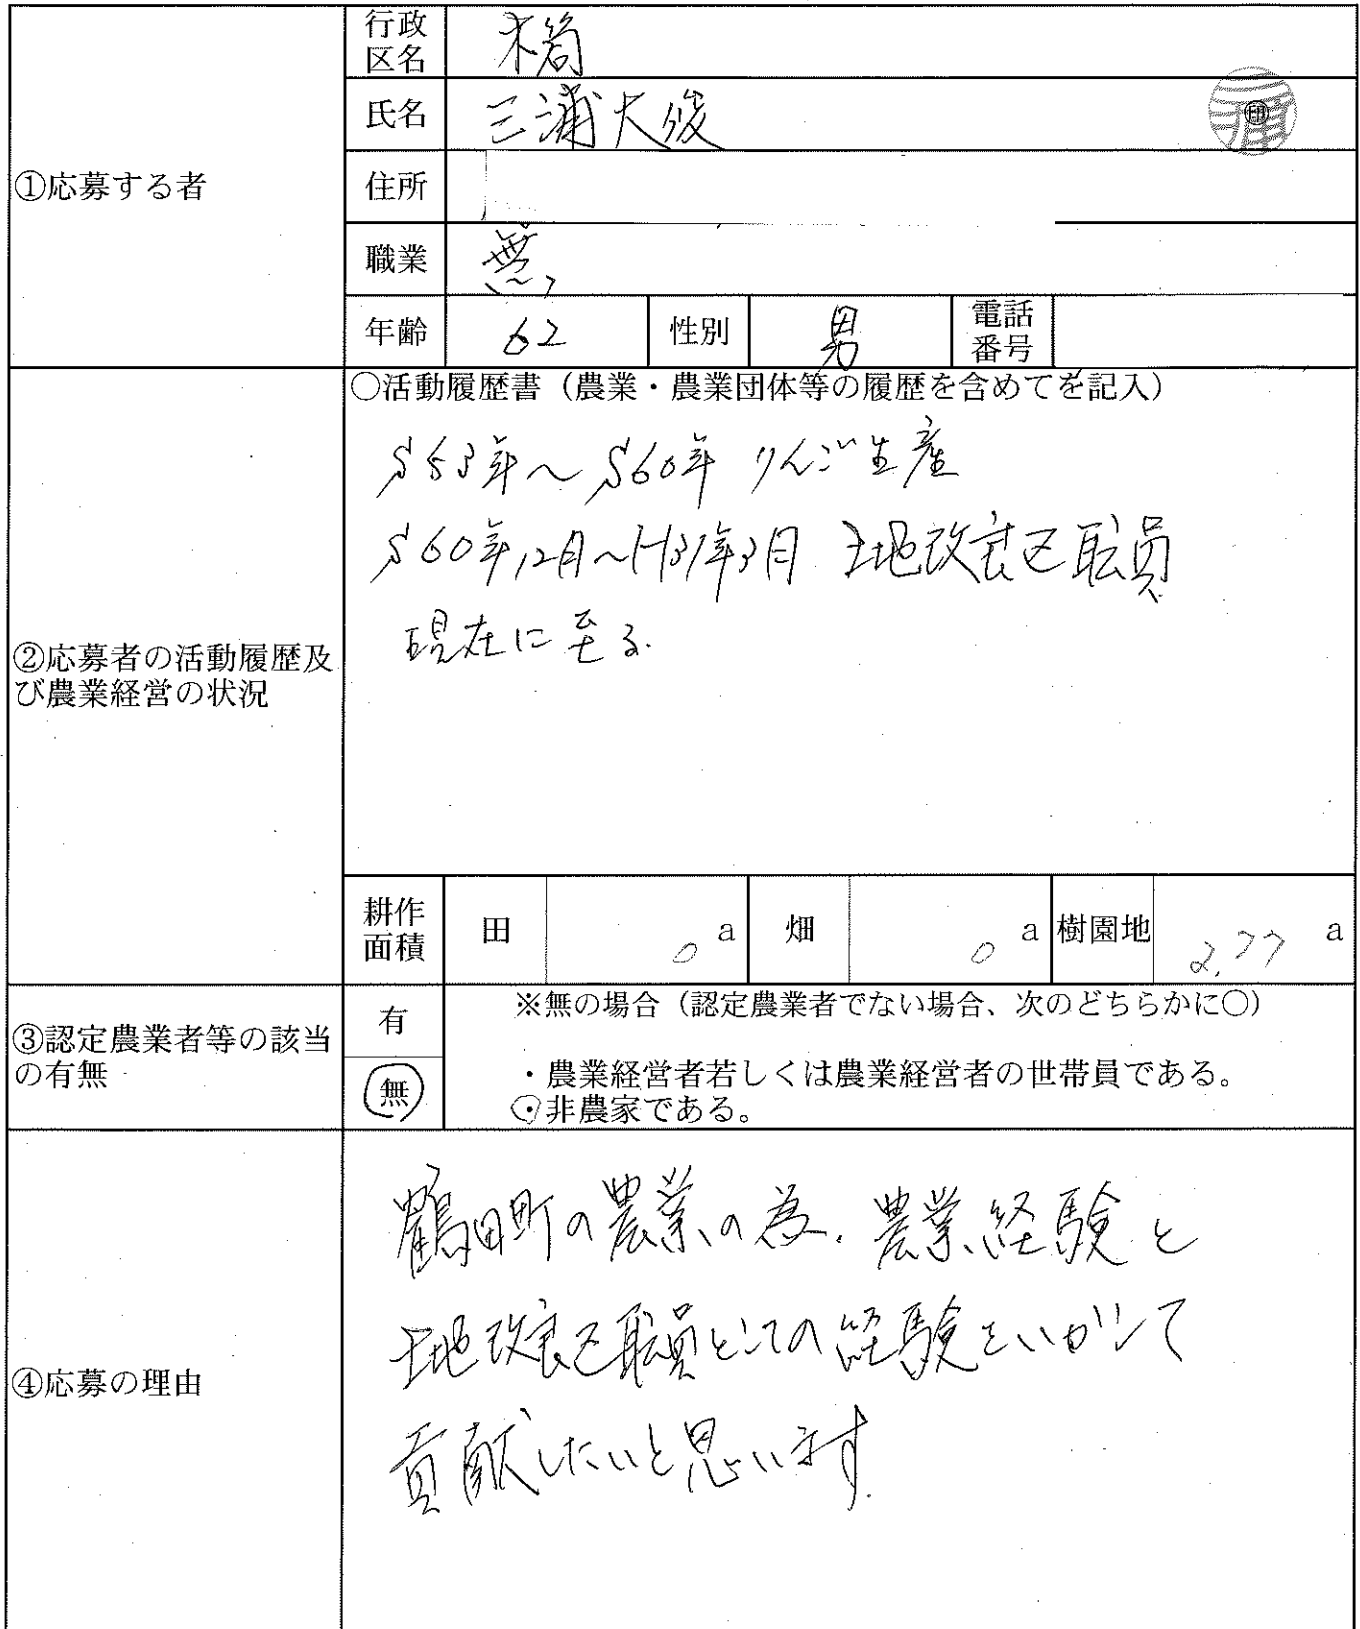 ①応募する者
行政区名 木筒
氏名 三浦大俊 ㊞ 三浦
住所
職業 無
年齢 62 性別 男 電話番号
②応募者の活動履歴及び農業経営の状況
○活動履歴書(農業・農業団体等の履歴を含めてを記入)
S53年～S60年 りんご生産
S60年12月～H31年3月 土地改良区職員
現在に至る.
耕作面積 田 0 a 畑 0 a 樹園地 2.77 a
③認定農業者等の該当の有無
有
無
※無の場合(認定農業者でない場合、次のどちらかに○)
・農業経営者若しくは農業経営者の世帯員である。
・非農家である。
④応募の理由
鶴田町の農業の為、農業経験と
土地改良区職員としての経験をいかして
貢献したいと思います.